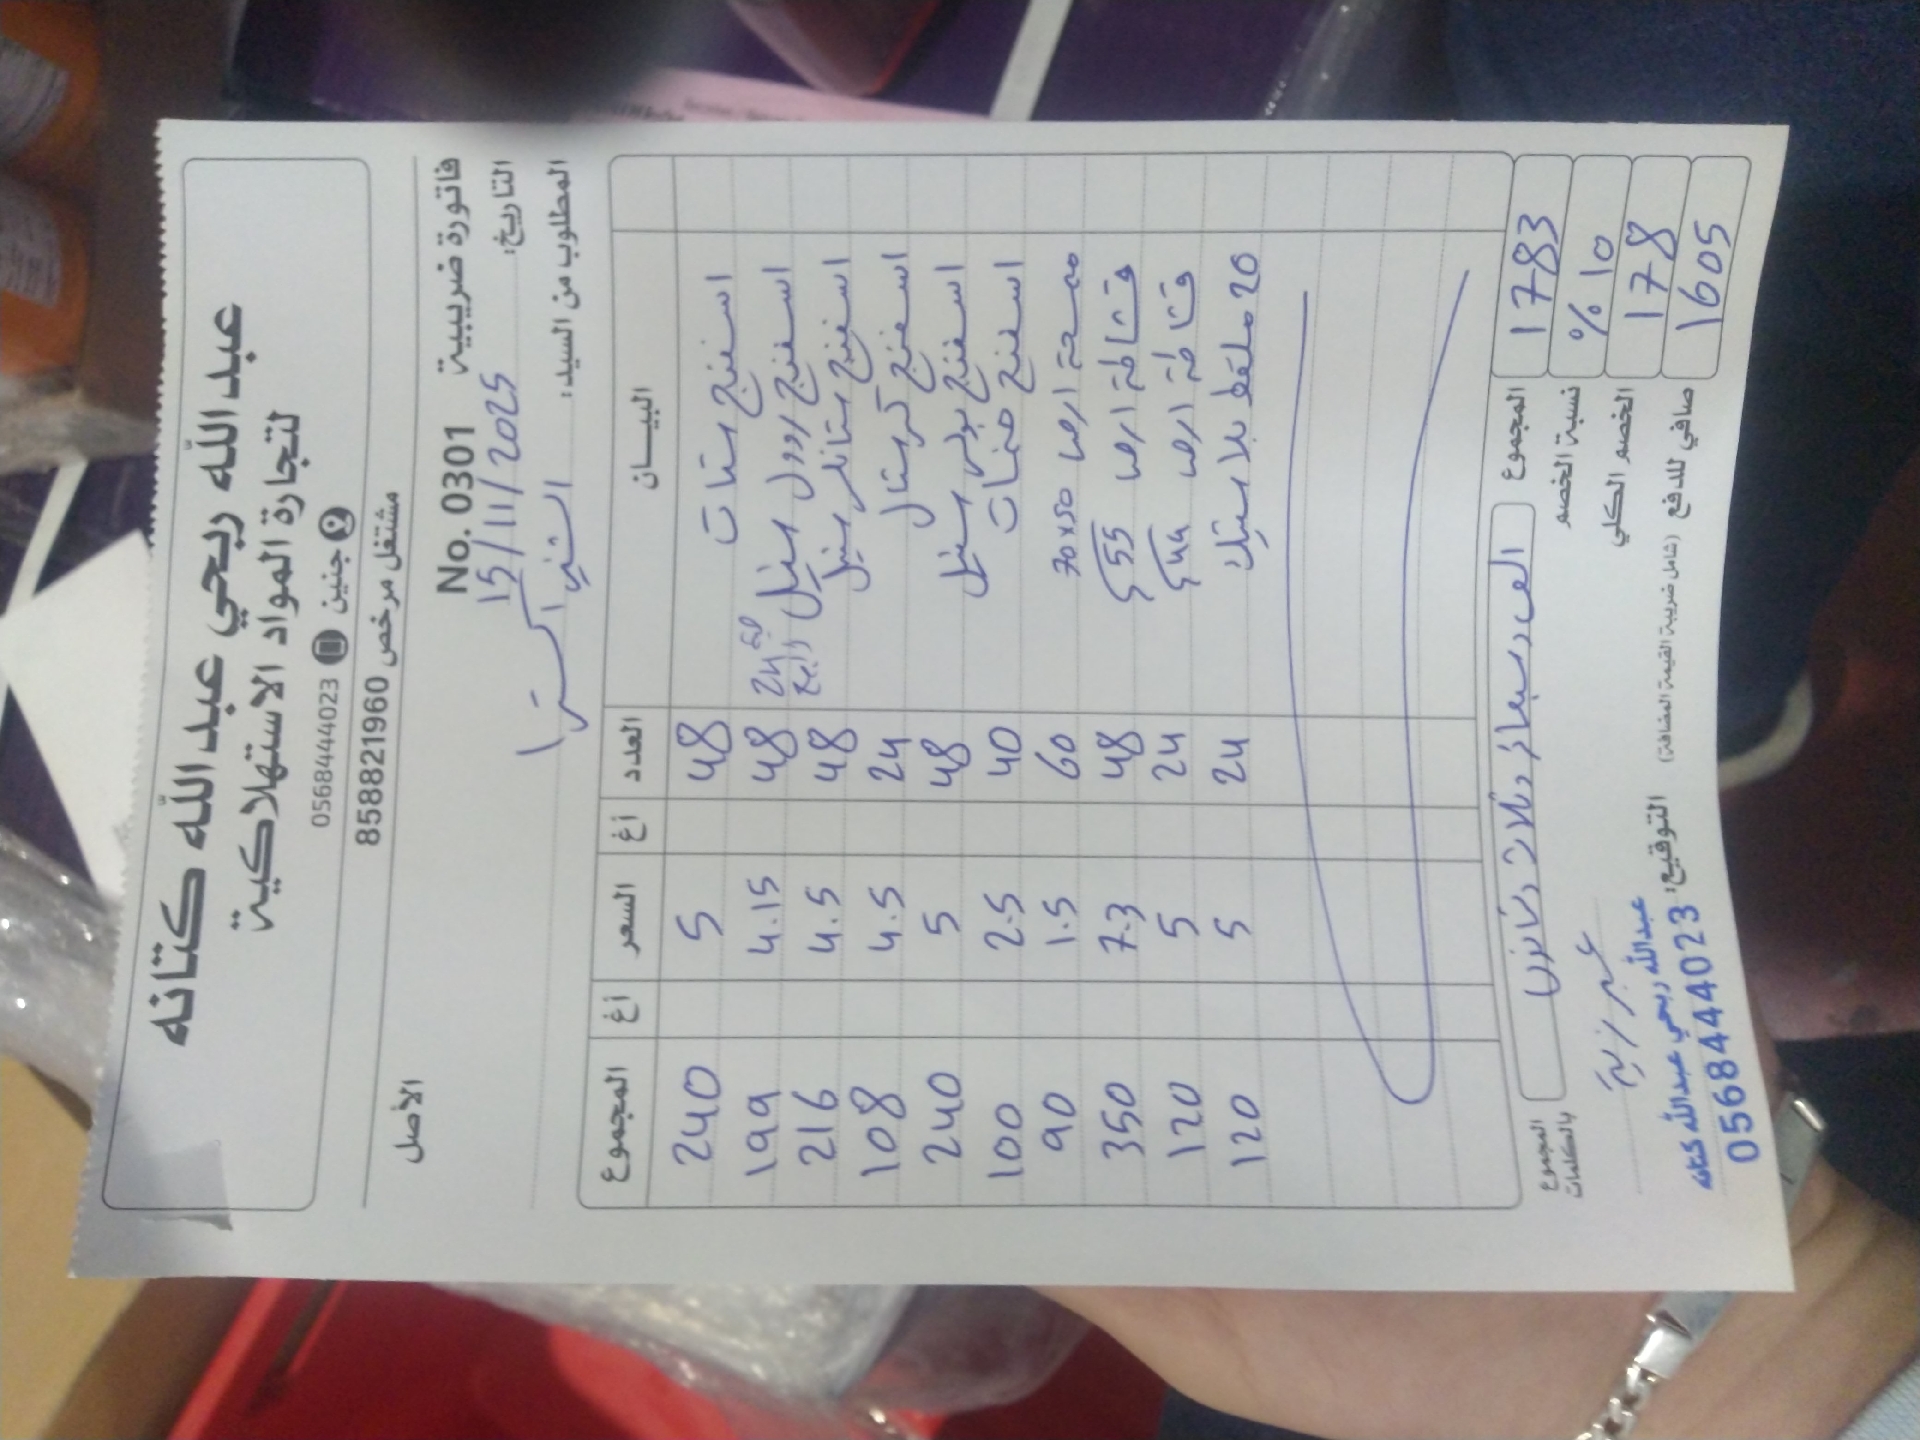 عبد الله ربحي عبد الله كتانه
لتجارة المواد الاستهلاكية
جنين 0568444023
مشتغل مرخص 858821960
الأصل
فاتورة ضريبية No. 0301
التاريخ: 15/11/2025
المطلوب من السيد:
البيـــان العدد أغ السعر أغ المجموع
اسفنج ستات 48 5 240
اسفنج رورل ستيل 24 48 4.15 199
اسفنج ستانلس ستيل 48 4.5 216
اسفنج كريستال 24 4.5 108
اسفنج بولي ستيل 48 5 240
اسفنج 40 2.5 100
ممسحة ارض 50x70 60 1.5 90
قشاطة ارض 55 48 7.3 350
قشاطة ارض 44 24 5 120
20 ملقط بلاستيك 24 5 120
المجموع 1783
نسبة الخصم % 10
الخصم الكلي 178
صافي للدفع 1605
(شامل ضريبة القيمة المضافة)
المجموع بالكلمات الف وسبعمائة وثلاث وثمانون
التوقيع:
عبدالله ربحي عبدالله كتانه
0568444023